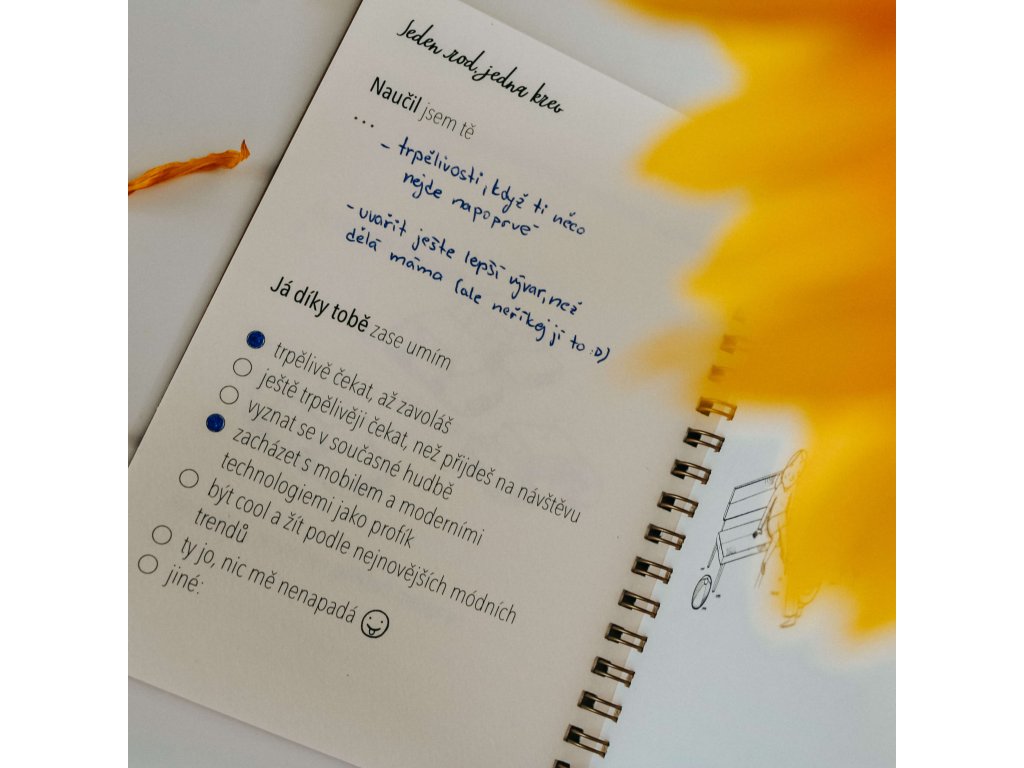 Jeden rod, jedna krev
Naučil jsem tě
...
- trpělivosti, když ti něco
nejde napoprvé
- uvařit ješte lepší vývar, než
dělá máma (ale neříkej jí to :D)
Já díky tobě zase umím
trpělivě čekat, až zavoláš
ještě trpělivěji čekat, než přijdeš na návštěvu
vyznat se v současné hudbě
zacházet s mobilem a moderními
technologiemi jako profík
být cool a žít podle nejnovějších módních
trendů
ty jo, nic mě nenapadá
jiné: